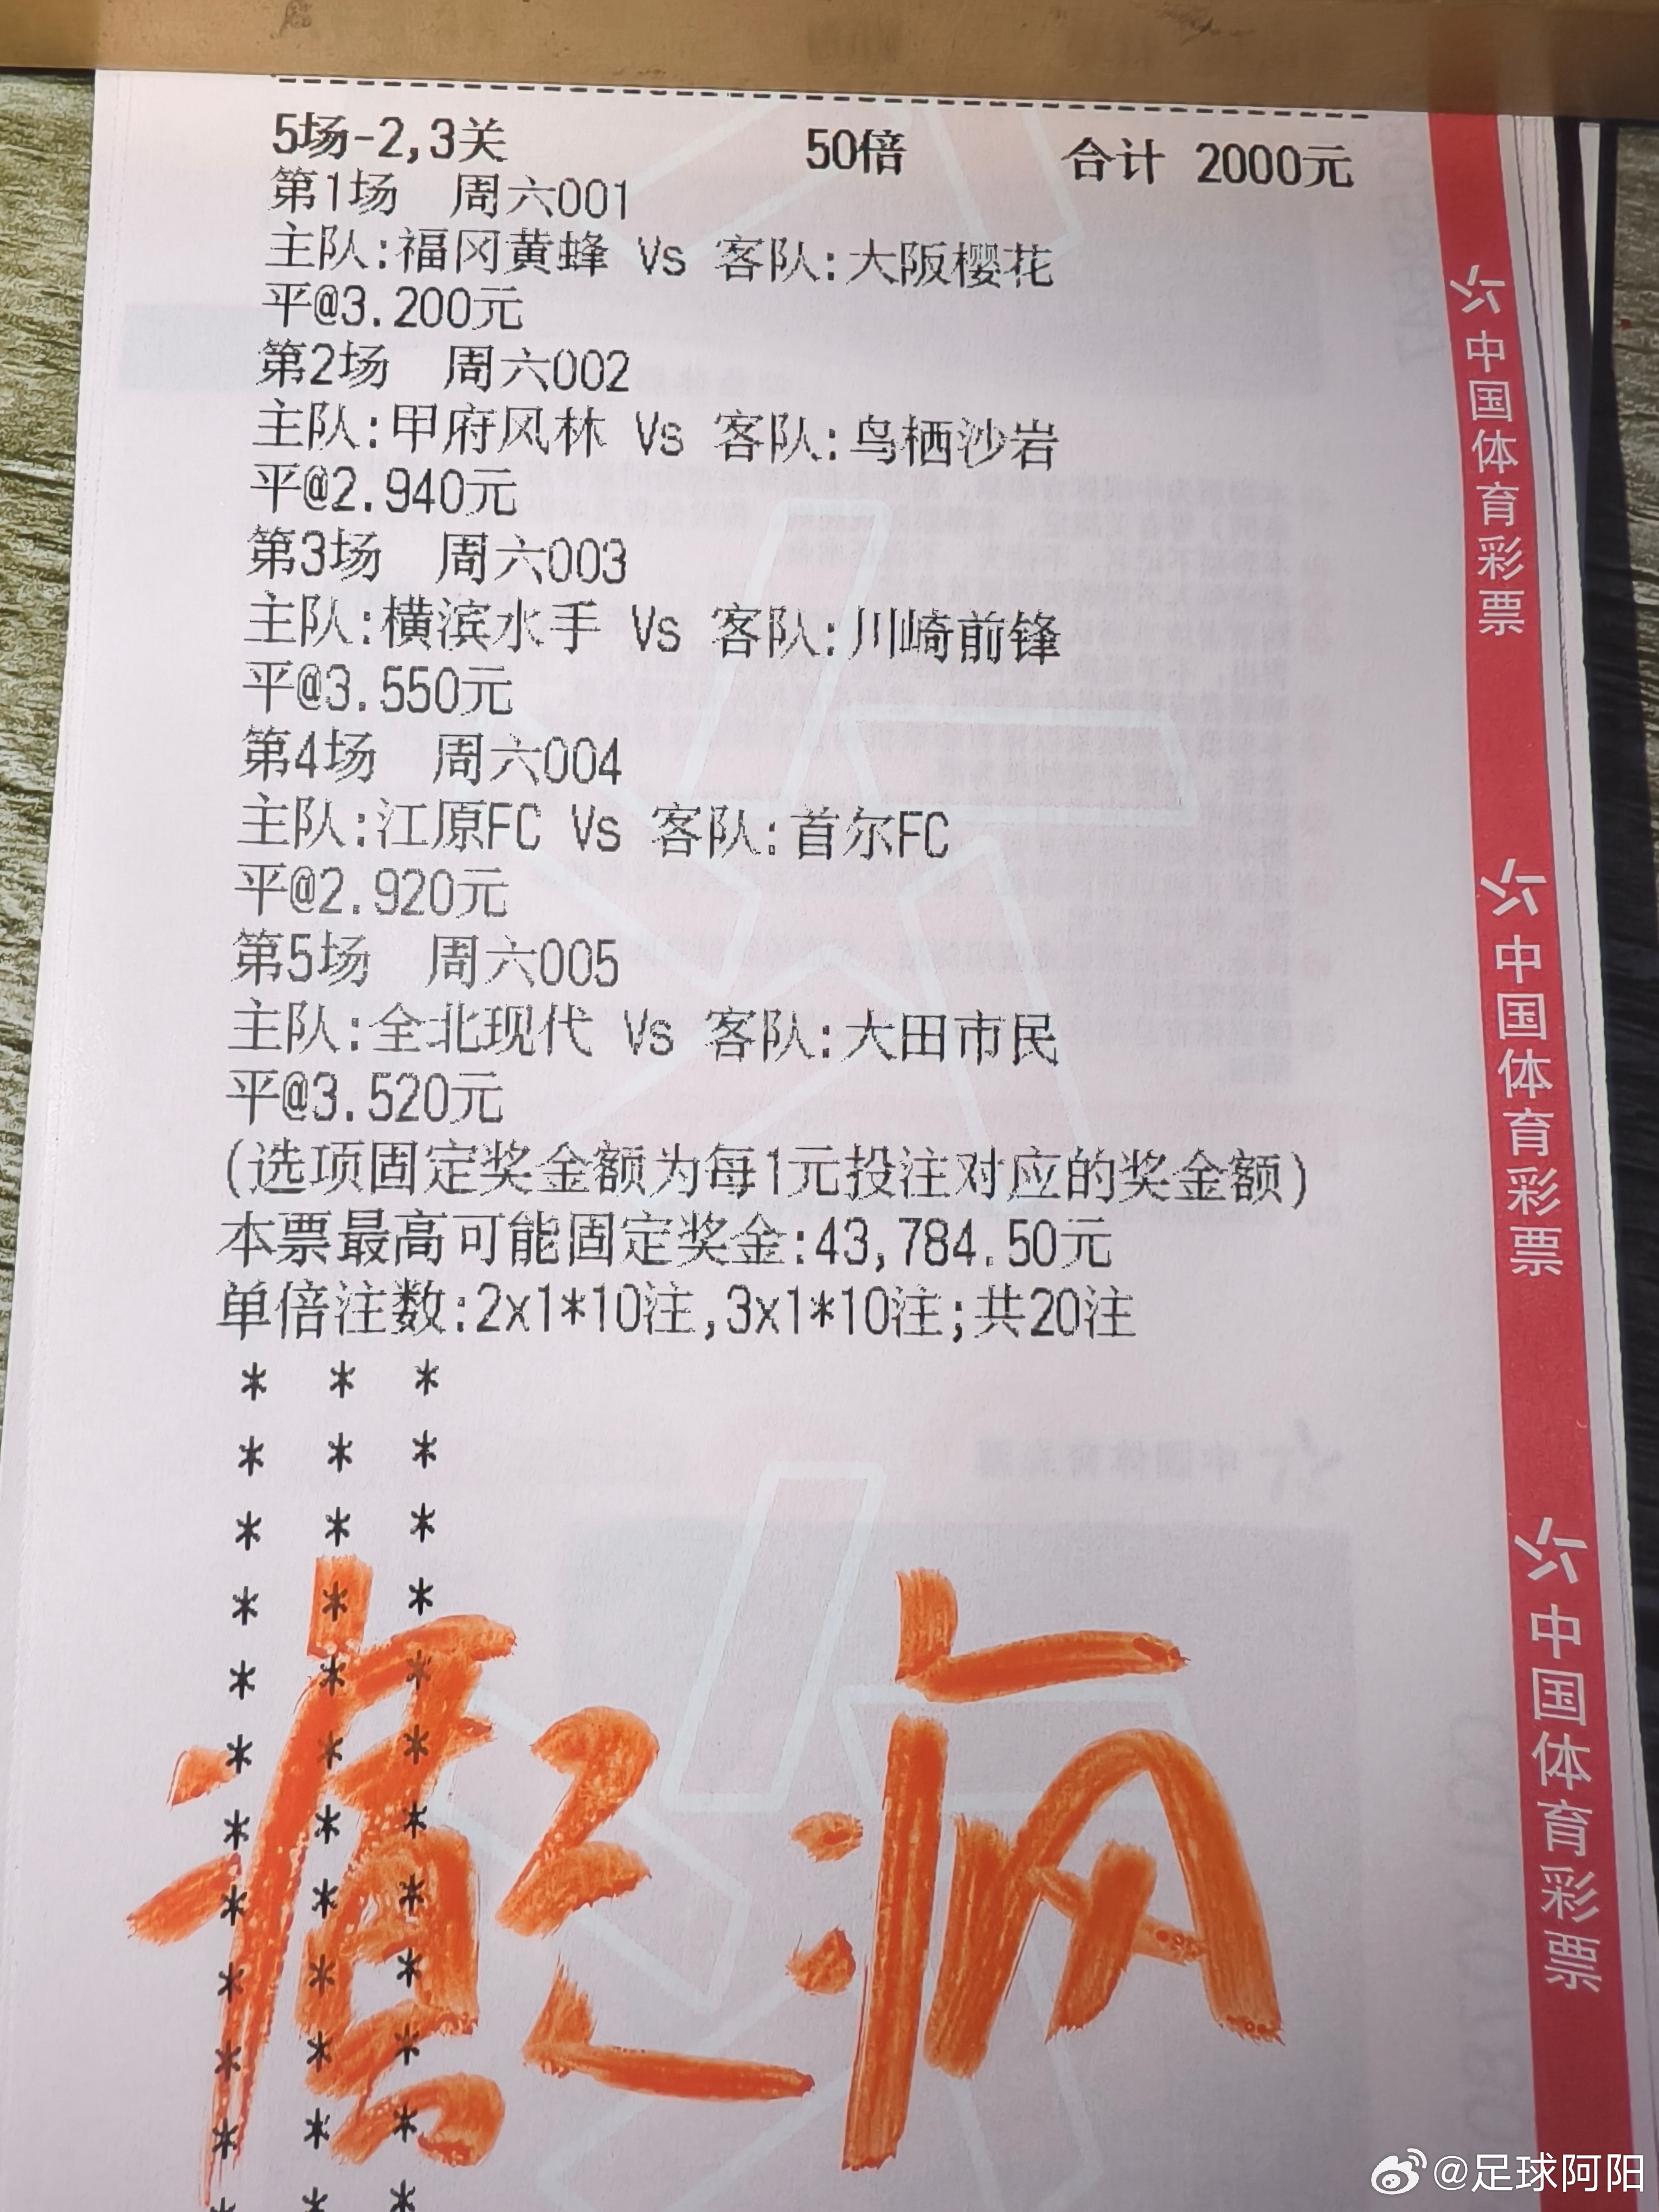 5场-2,3关 50倍 合计 2000元
第1场 周六001
主队:福冈黄蜂 Vs 客队:大阪樱花
平@3.200元
第2场 周六002
主队:甲府风林 Vs 客队:鸟栖沙岩
平@2.940元
第3场 周六003
主队:横滨水手 Vs 客队:川崎前锋
平@3.550元
第4场 周六004
主队:江原FC Vs 客队:首尔FC
平@2.920元
第5场 周六005
主队:全北现代 Vs 客队:大田市民
平@3.520元
(选项固定奖金额为每1元投注对应的奖金额)
本票最高可能固定奖金:43,784.50元
单倍注数:2x1*10注,3x1*10注;共20注
* * *
* * *
* * *
* * *
* * *
* * *
* * *
* * *
* * *
* * *
* * *
* * *
中国体育彩票
中国体育彩票
中国体育彩票
@足球阿阳